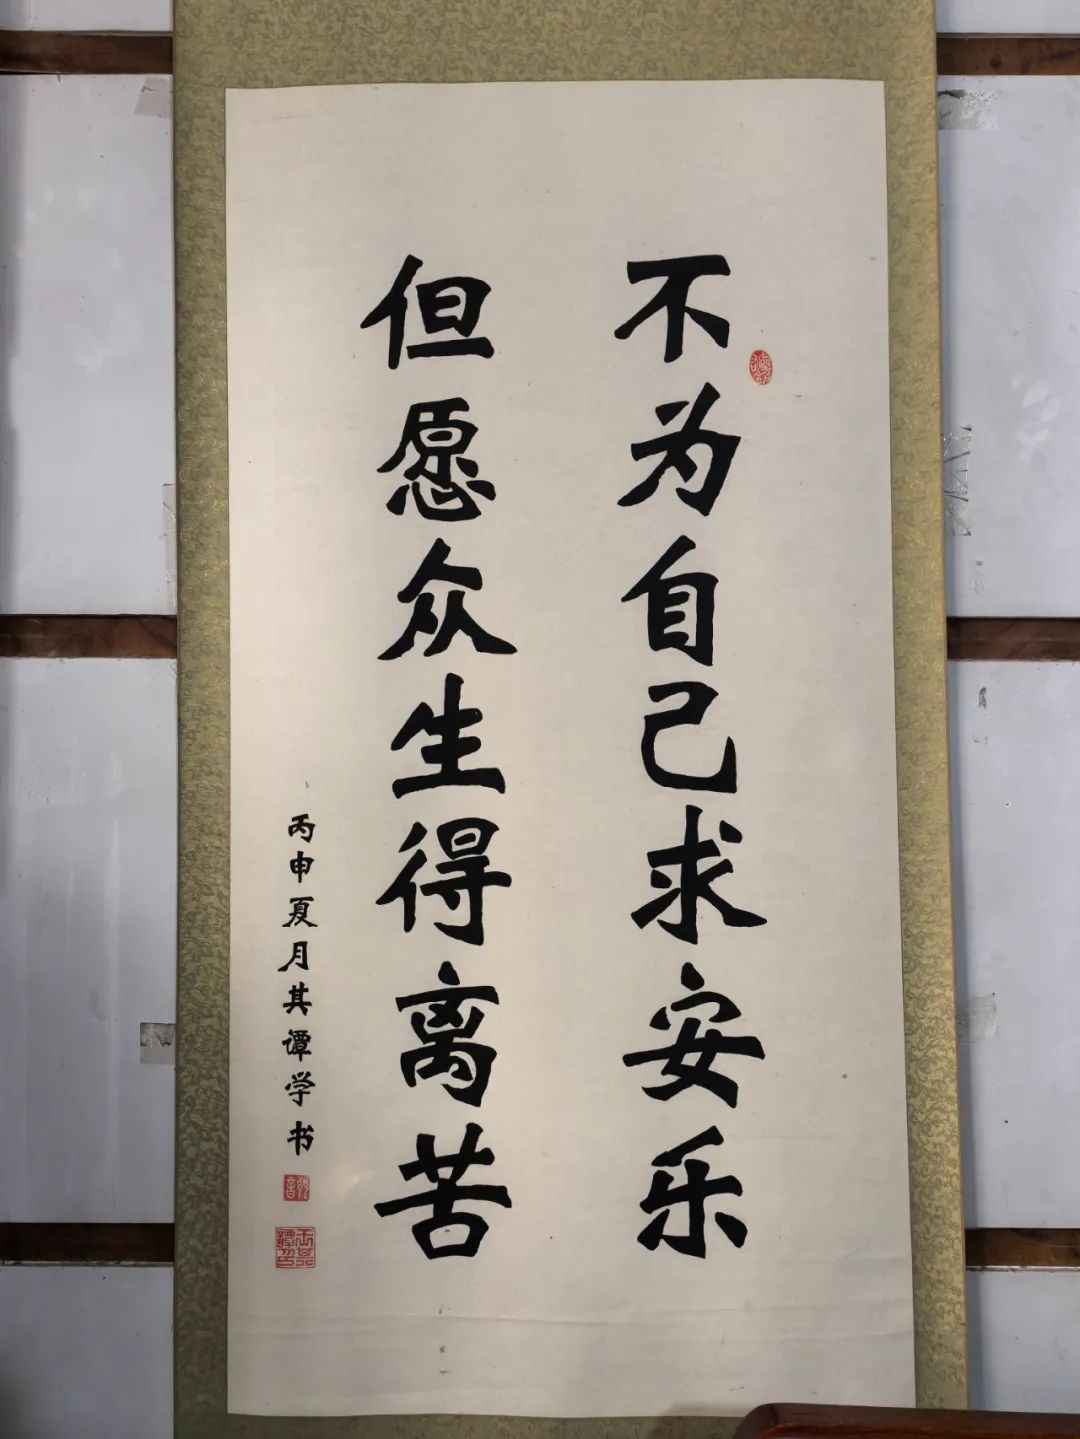 不为自己求安乐
但愿众生得离苦
丙申夏月其谭学书